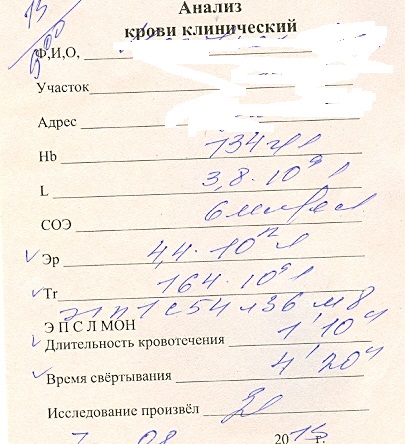 Анализ
крови клинический
Ф,И,О,
Участок
Адрес
Hb 134 г/л
L 3,8 · 10⁹ л
СОЭ 6 мм/час
Эр 4,4 · 10¹² л
Tr 164 · 10⁹ л
Э1 п1 с54 л36 м8
Э П С Л МОН
Длительность кровотечения 1' 10"
Время свёртывания 4' 20"
Исследование произвёл
08 20 г.